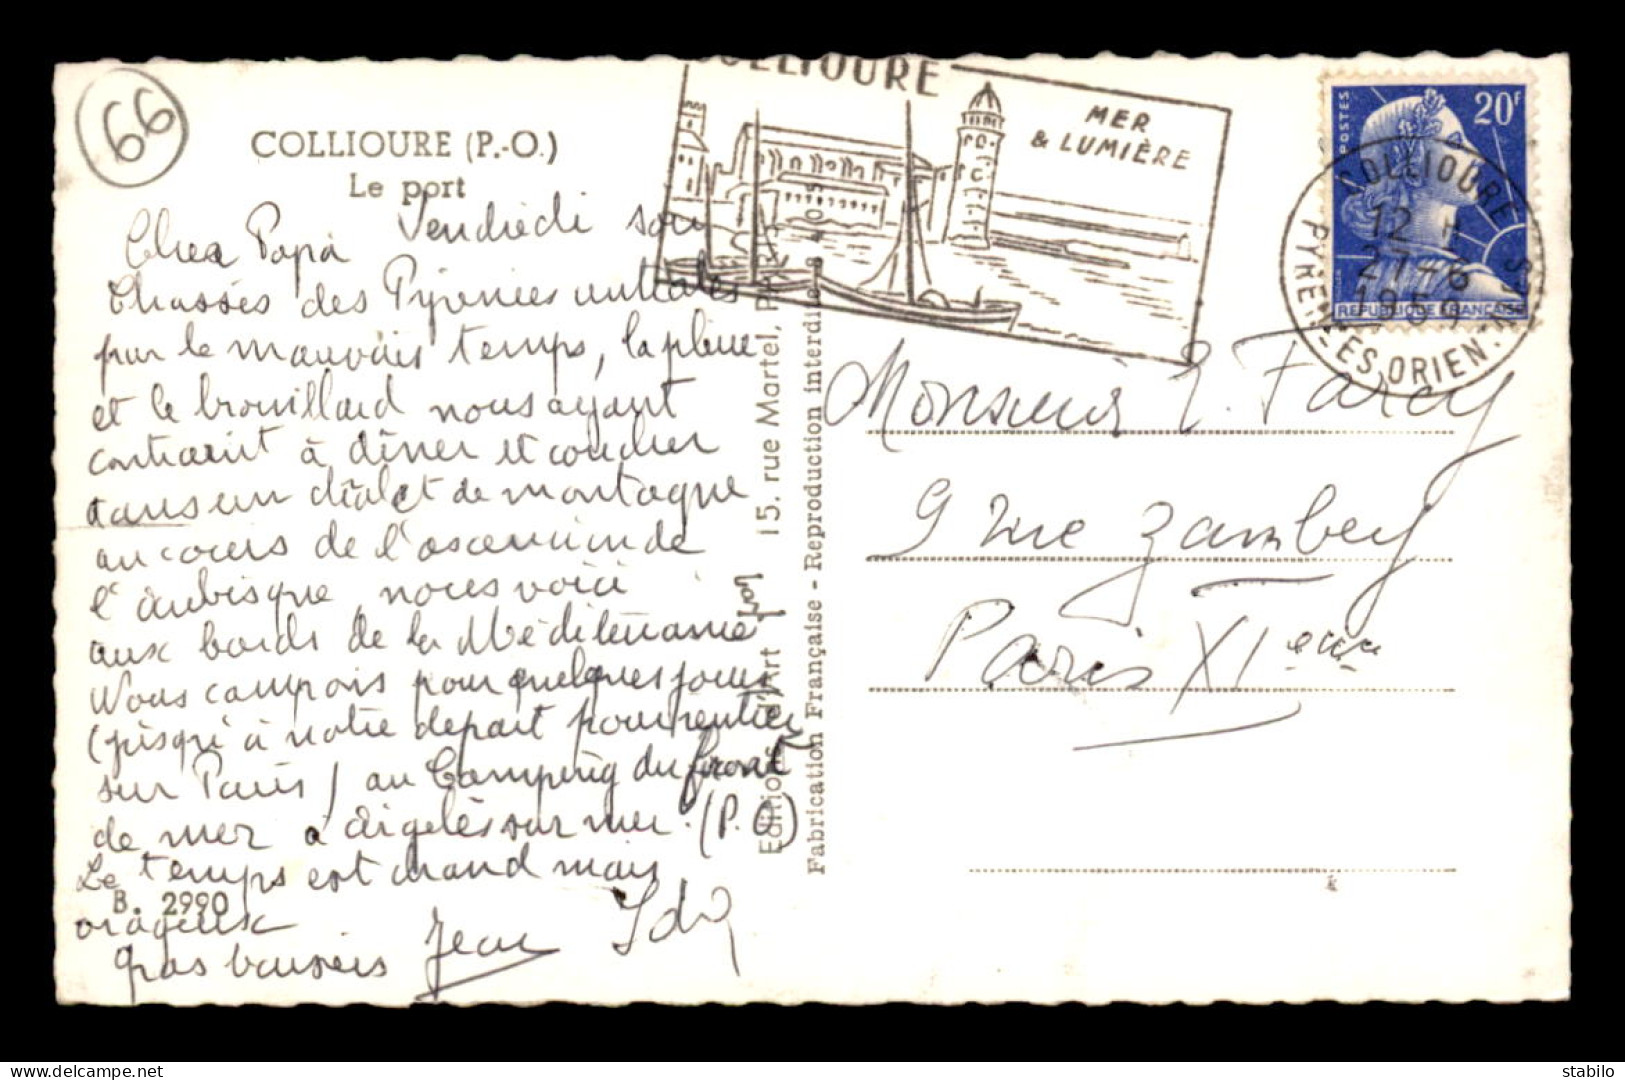 66
COLLIOURE (P.-O.)
Le port
Vendredi soir
Cher Papa
Chassés des Pyrénées centrales
par le mauvais temps, la pluie
et le brouillard nous ayant
contraint à dîner et coucher
dans un chalet de montagne
au cours de l'ascension de
l'aubisque nous voici
aux bords de la Méditerranée
Nous campons pour quelques jours
(jusqu'à notre depart pour rentrer
sur Paris) au Camping du front
de mer à Argelès sur mer. (P.O)
Le temps est chaud mais
orageux
Gros baisers Jean
B. 2990
Editions d'Art
15, rue Martel, PARIS
Fabrication Française - Reproduction interdite
COLLIOURE
MER
& LUMIÈRE
POSTES
20F
REPUBLIQUE FRANÇAISE
COLLIOURE
12 H
27-6
1959
PYRENEES ORIENTALES
Monsieur Farcy
9 rue Zambey
Paris XIeme
delcampe.net
stabilo